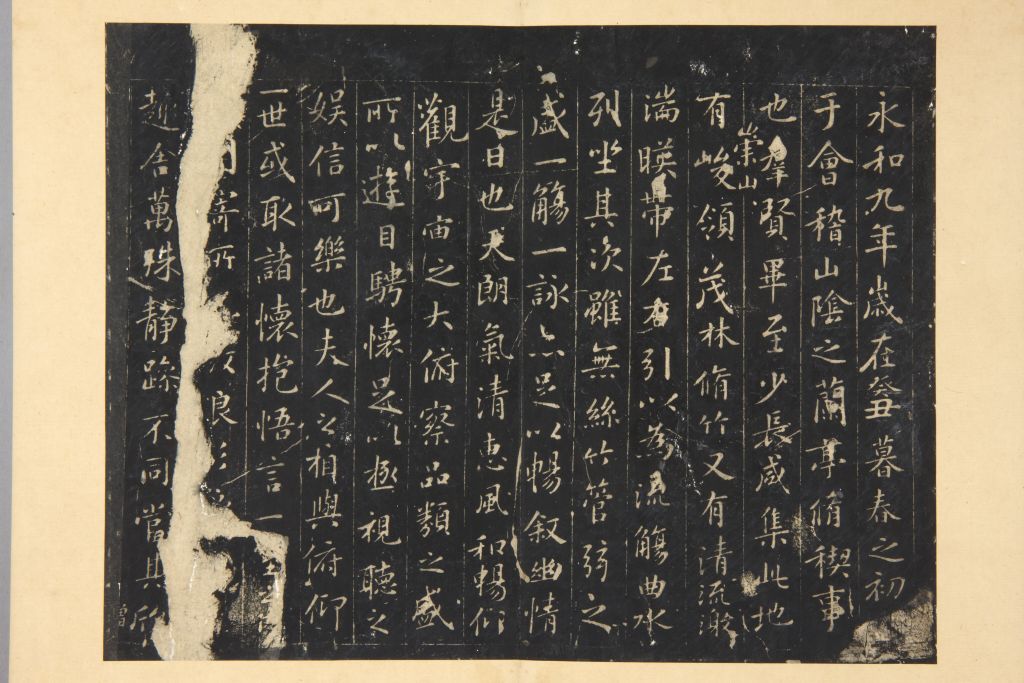 永和九年歲在癸丑暮春之初
于會稽山陰之蘭亭脩稧事
也羣賢畢至少長咸集此地
崇山
有峻領茂林脩竹又有清流激
湍暎帶左右引以為流觴曲水
列坐其次雖無絲竹管弦之
盛一觴一詠亦足以暢敘幽情
是日也天朗氣清惠風和暢仰
觀宇宙之大俯察品類之盛
所以遊目騁懷足以極視聽之
娛信可樂也夫人之相與俯仰
一世或取諸懷抱悟言一
寄所浪
趣舍萬殊靜躁不同當其欣
僧